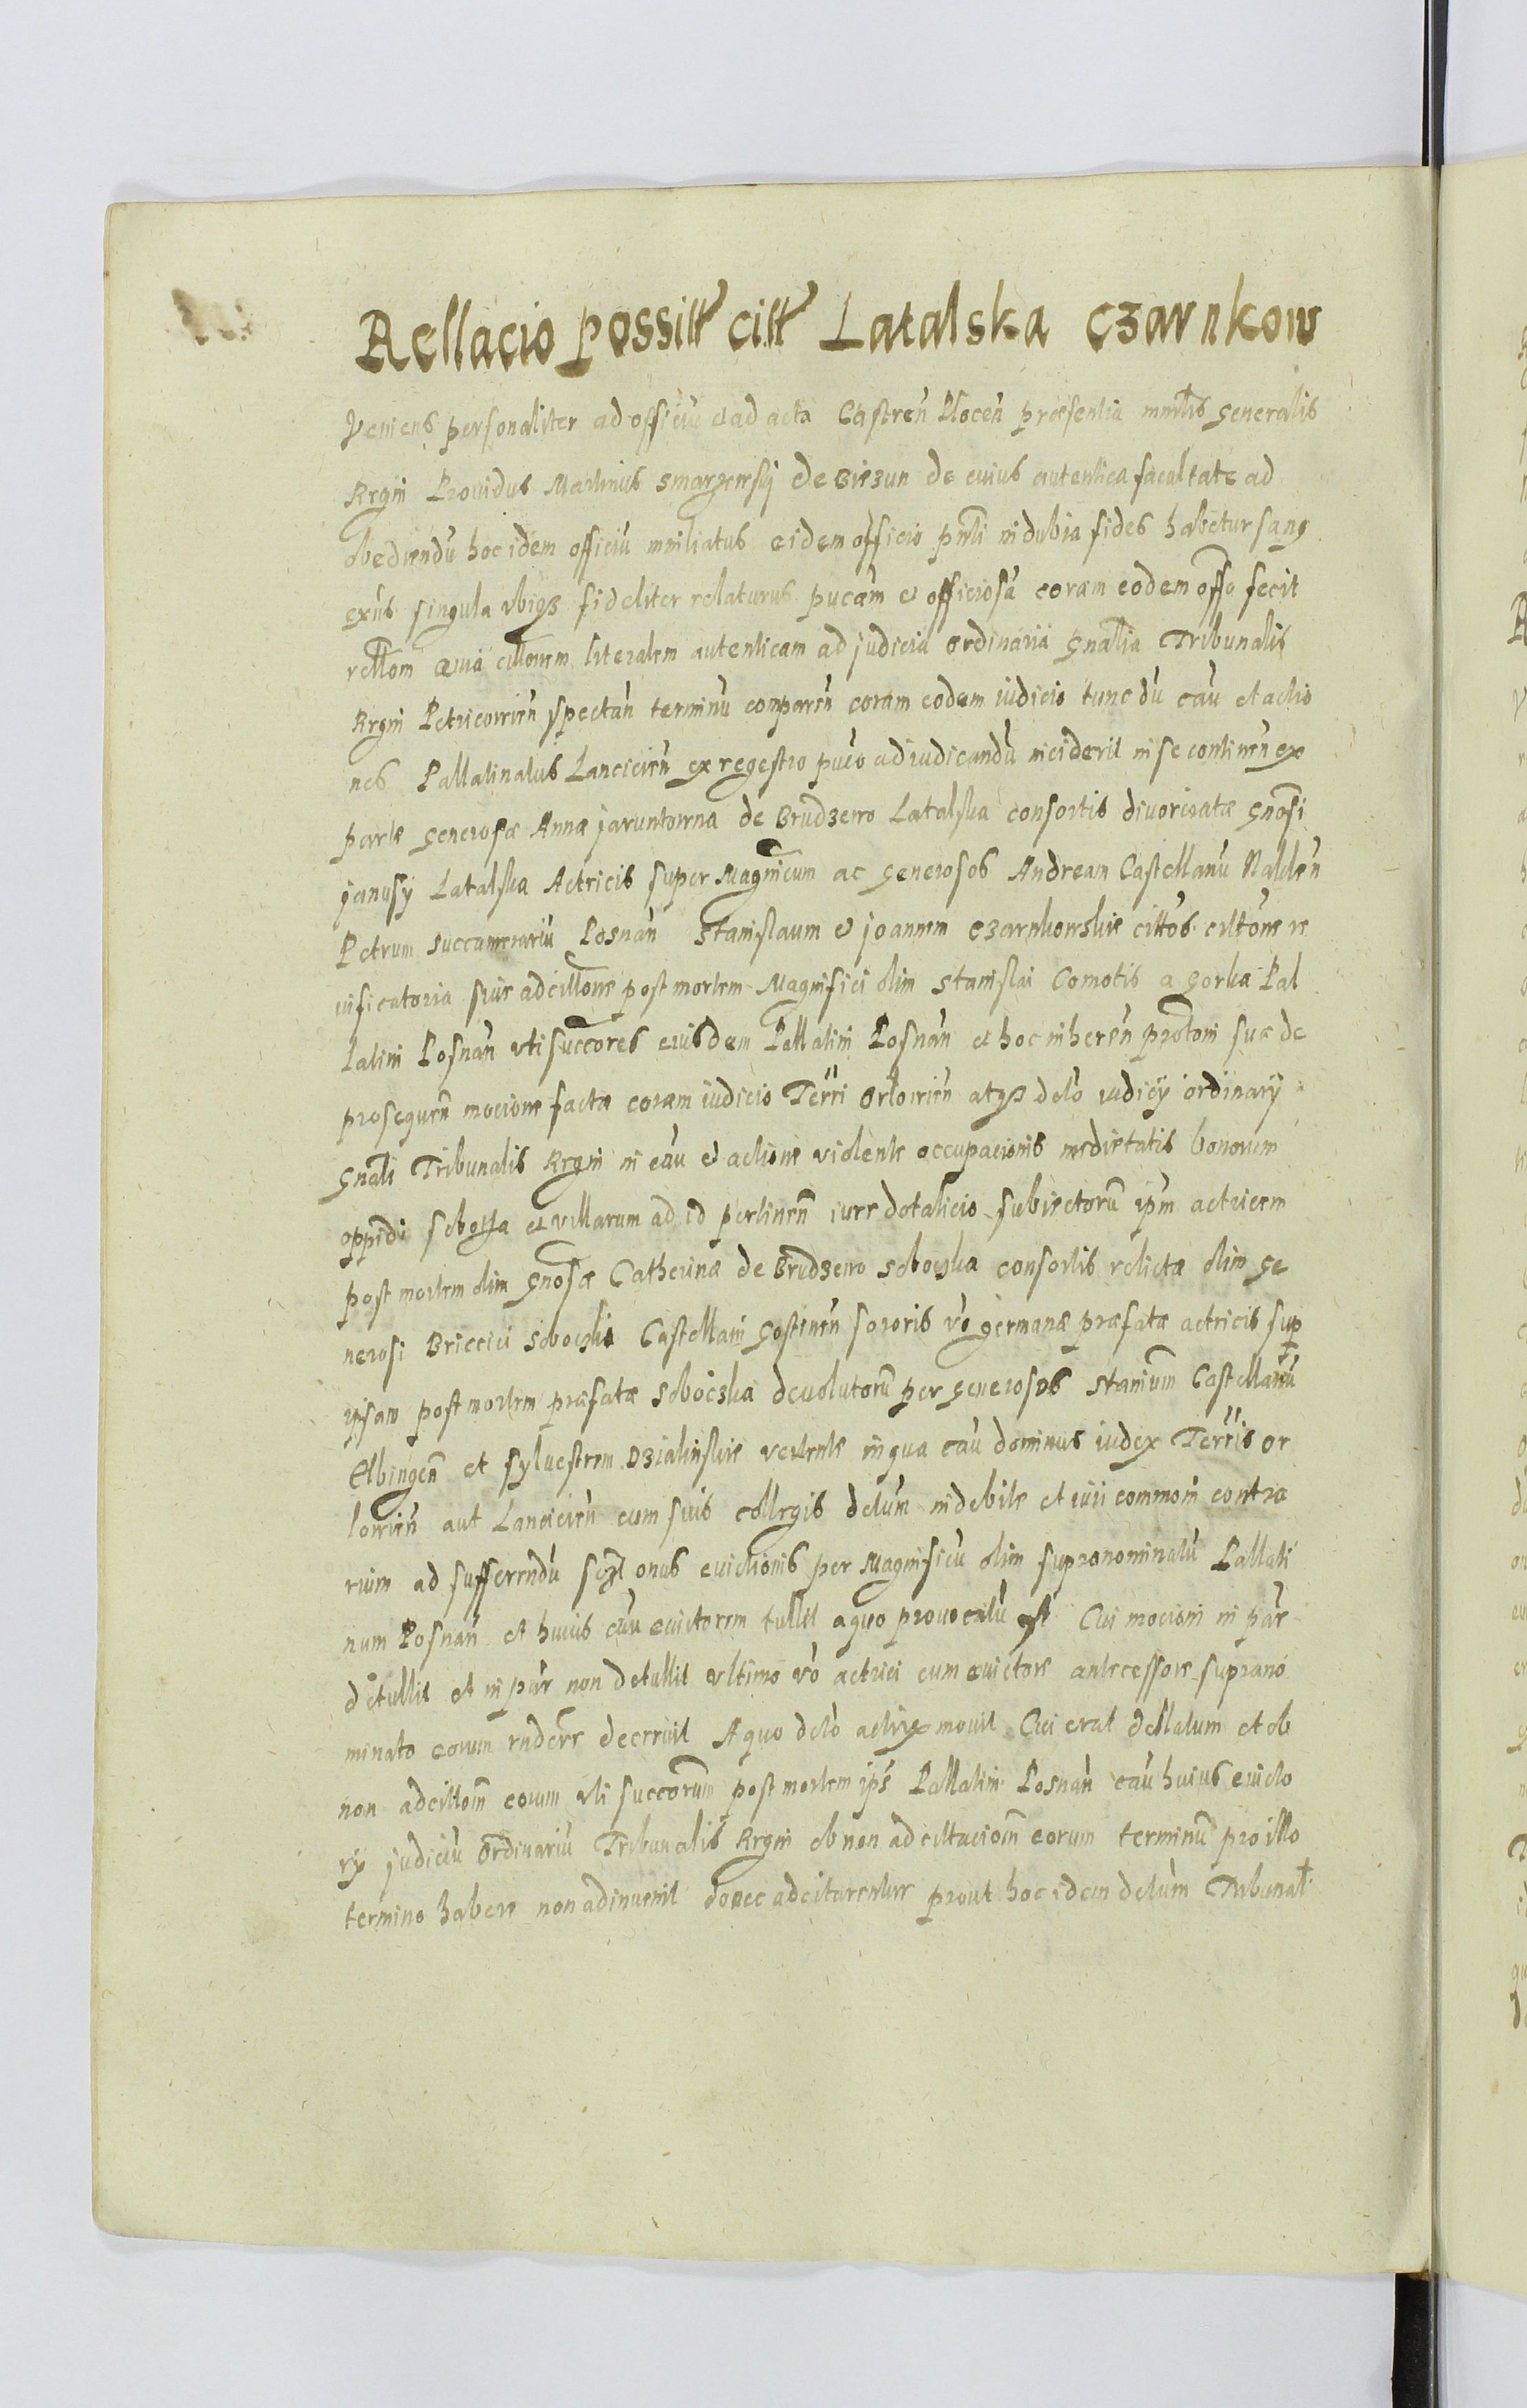 Rellacio possitt citt Latalska Czarnkow
Veniens personaliter ad officiu et ad acta Castren Plocen præsentia mnrlis generalis
Regni Prouidus Martinus Smarzewsky de Biezun de cuius autentica facultate ad
obediendu hoc idem officiu mnliatus eidem officio pnrli indubia fides habetur sane
exns singula vbiqз fideliter relaturus pucam et officiosa coram eodem offo fecit
rellom quia cittonem literalem autenticam ad judicia ordinaria gnalia Tribunalis
Regni Petricovien spectan terminu comparen coram eodem iudicio tunc du cau et actio
nes Pallatinatus Lancicien ex regestro puco adiudicandu inciderit in se continen ex
parte generosæ Annæ Jaruntowna de Brudzewo Latalska consortis diuorciatæ gnosi
Janusy Latalsky Actricis super Magnicum ac generosos Andream Castellanu Naklen
Petrum Succamerariu Posnan Stanislaum et Joannem Czarnkowskie cittos cittone re
uificatoria siue adcittone post mortem Magnifici olim Stanislai Comotis a Gorka Pal
latini Posnan vti succores eiusdem Pallatini Posnan et hoc inheren protoni suæ de
prosequen mocione facta coram iudicio Terri Orlovien atqз delo iudicy ordinary
gnali Tribunalis Regni in cau et actione violente occupacionis medietatis bonorum
oppidi Sobota et villarum ad id pertinen iure dotalicio subiectoru ipm actricem
post mortem olim gnosæ Catherinæ de Brudzewo Sobocka consortis relictæ olim ge
nerosi Briccii Sobocki Castellani Gostinen sororis vo germanæ præfatæ actricis sup
ipsam post mortem præfatæ Soboczka deuolutoru per generosos Stanium Castellanu
Elbingen et Syluestrem Dzialinskie vertente in qua cau dominus iudex Terris Or
lovien aut Lancicien cum suis collegis delum indebite et iuri commom contra
rium ad sufferendu onus euictionis per Magnificu olim supranominatu Pallati
num Posnan et huius cau euictorem tullit a quo prouocatu est Cui mocioni in par
detullit et in par non detullit vltimo vo actrici cum euictore antecessore suprano
minato eorum rndere decreuit A quo delo actrix mouit Cui erat dellatum et ob
non adcittom eorum vti succorum post mortem ips Pallatini Posnan cau huius euicto
rx judiciu ordinariu Tribunalis Regni ob non adcittaciom eorum terminu pro illo
termino habere non adinuenit donec adcitarentur prout hoc idem delum Tribunal